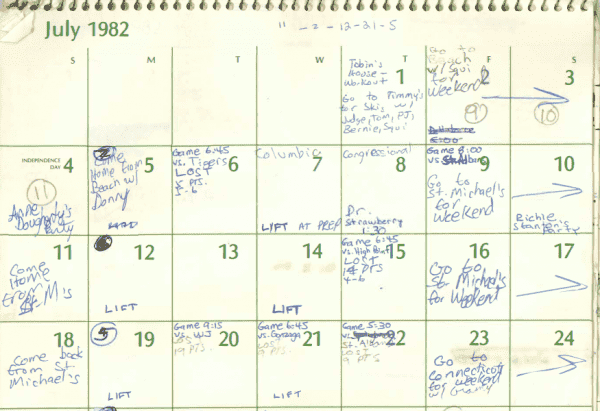 July 1982
S M T W T F S
1
Tobin's
House -
Workout
Go to Timmy's
for Skis w/
Judge, Tom, PJ,
Bernie, Squi
2
Go to
Beach
w/ Squi
for
weekend
9
3
10
INDEPENDENCE
DAY
4
11
Anne
Dougherty's
Party
5
Come
Home from
Beach w/
Donny
6
Game 6:45
vs. Tigers
LOST
5 PTS.
5-6
7
Columbia
LIFT AT PREP
8
Congressional
Dr.
Strawberry
1:30
9
Game 8:00
vs.
Go to
St. Michael's
for
weekend
10
Richie
Stanton's
Party
11
Come
Home
from
St. M's
12
LIFT
13
14
LIFT
15
Game 6:45
vs. High Point
LOST
14 PTS
4-6
16
Go to
St. Michael's
for Weekend
17
18
Come back
from St.
Michael's
5
19
LIFT
20
Game 9:15
vs. WJ
LOST
19 PTS.
21
Game 6:45
vs. Gonzaga
LOST
9 PTS.
LIFT
22
Game 5:30
vs.
LOST
9 PTS
23
Go to
Connecticut
for weekend
w/
24